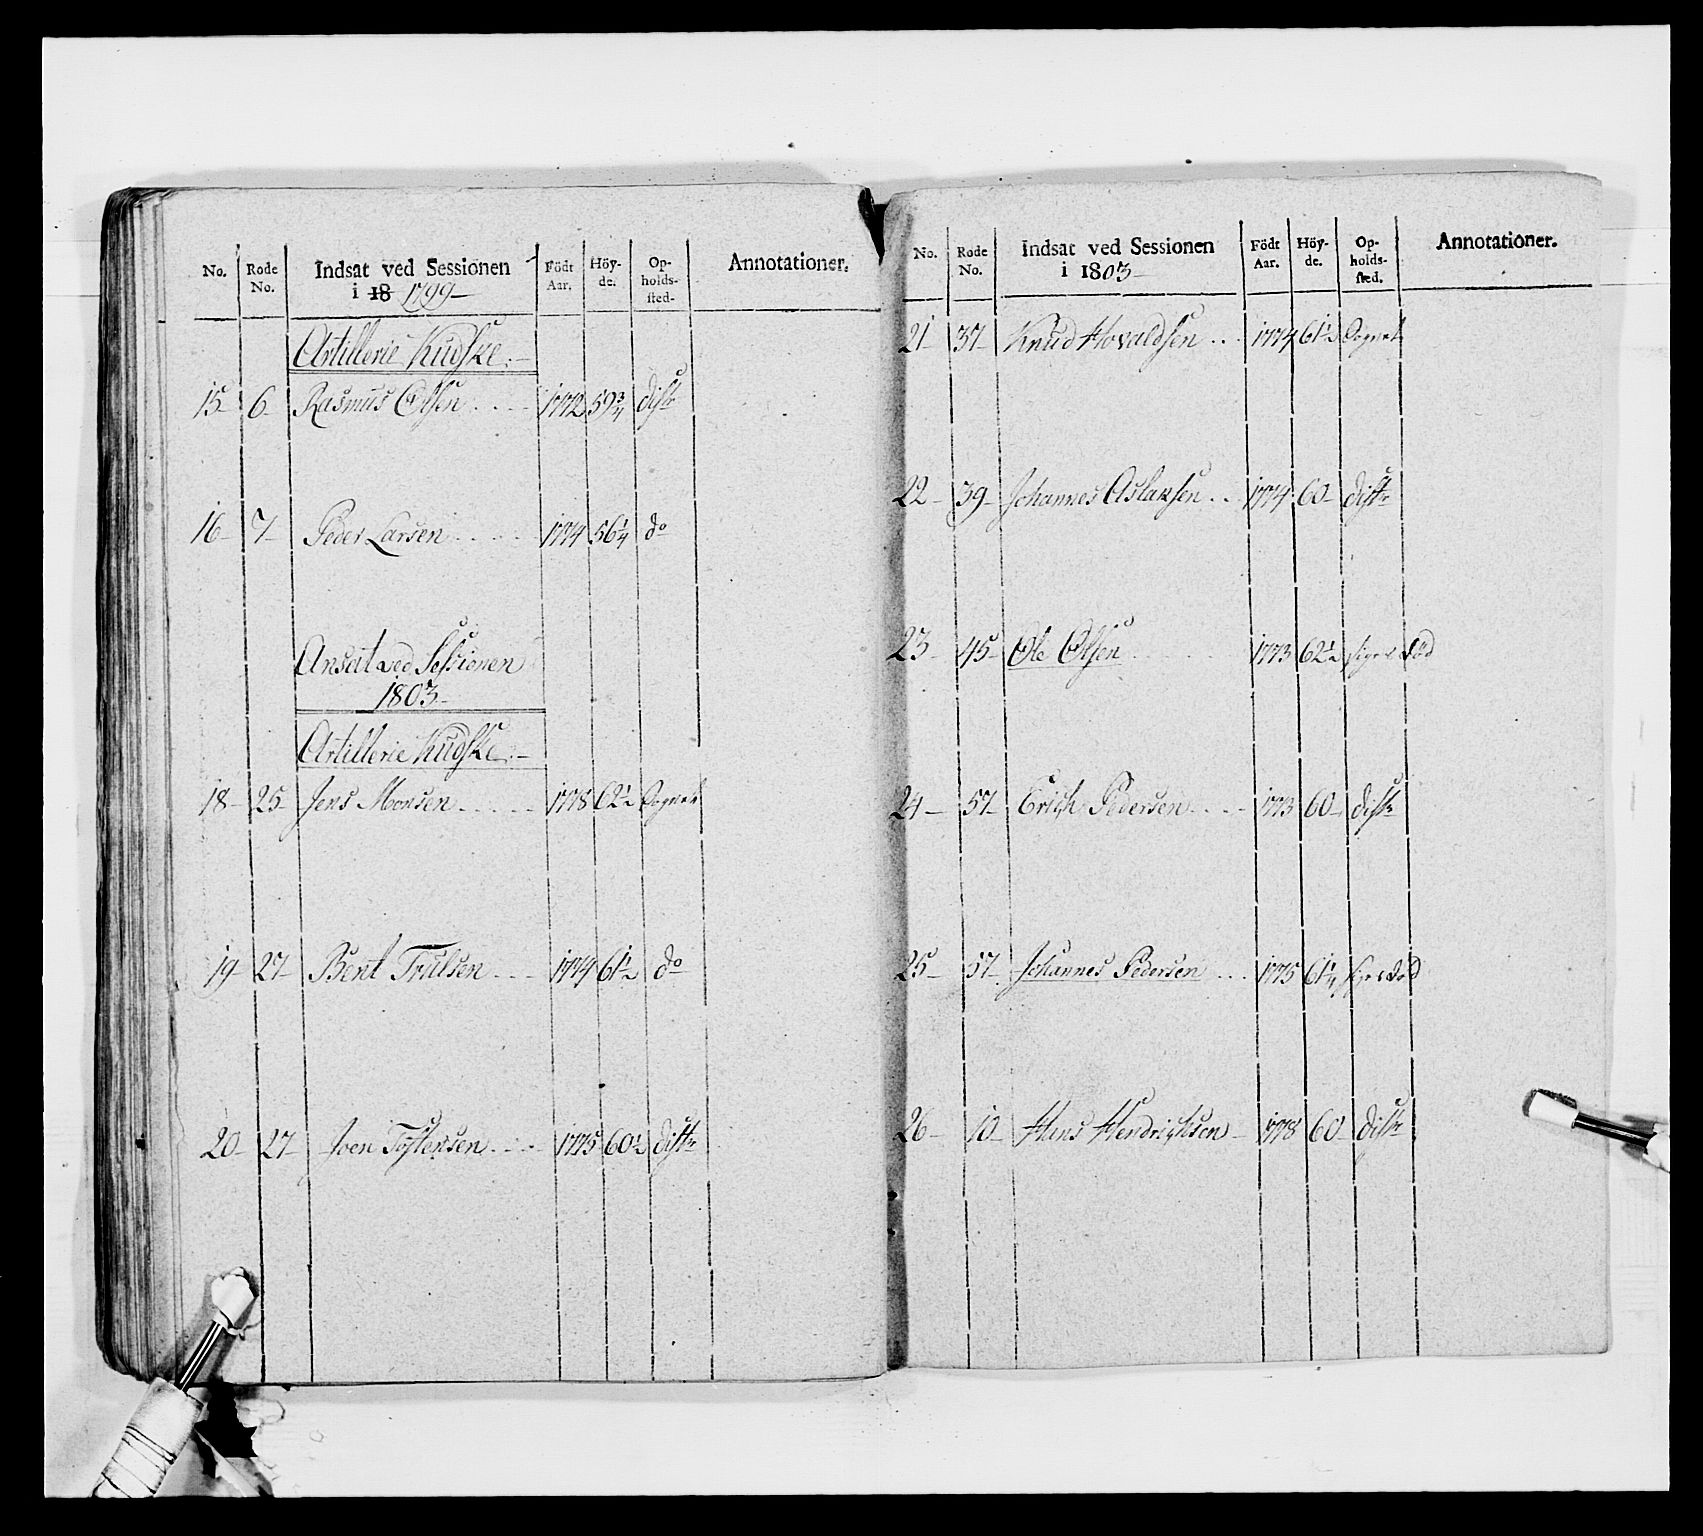 No. Rode No. Indsat ved Sessionen i 18 1799 Födt Aar. Höy-de. Op-holds-sted. Annotationer.
Artillerie Kudske
15 6 Rasmus Olsen 1772 59 3/4 distr
16 7 Peder Larsen 1774 56 1/4 do
Ansat ved Sessionen
1803
Artillerie Kudske
18 25 Jens Monsen 1778 62 1/2 Sognet
19 27 Bent Trulsen 1774 61 1/2 do
20 27 Iven Tostensen 1775 60 1/2 distr
No. Rode No. Indsat ved Sessionen i 1803 Födt Aar. Höy-de. Op-holds-sted. Annotationer.
21 37 Knud Hovaldsen 1774 61 1/2 Sognet
22 39 Johannes Aslaksen 1774 60 distr
23 45 Ole Olsen 1773 62 1/2 siges död
24 57 Erich Pedersen 1773 60 distr
25 57 Johannes Pedersen 1775 61 1/4 siges död
26 10 Hans Hendrichsen 1778 60 distr